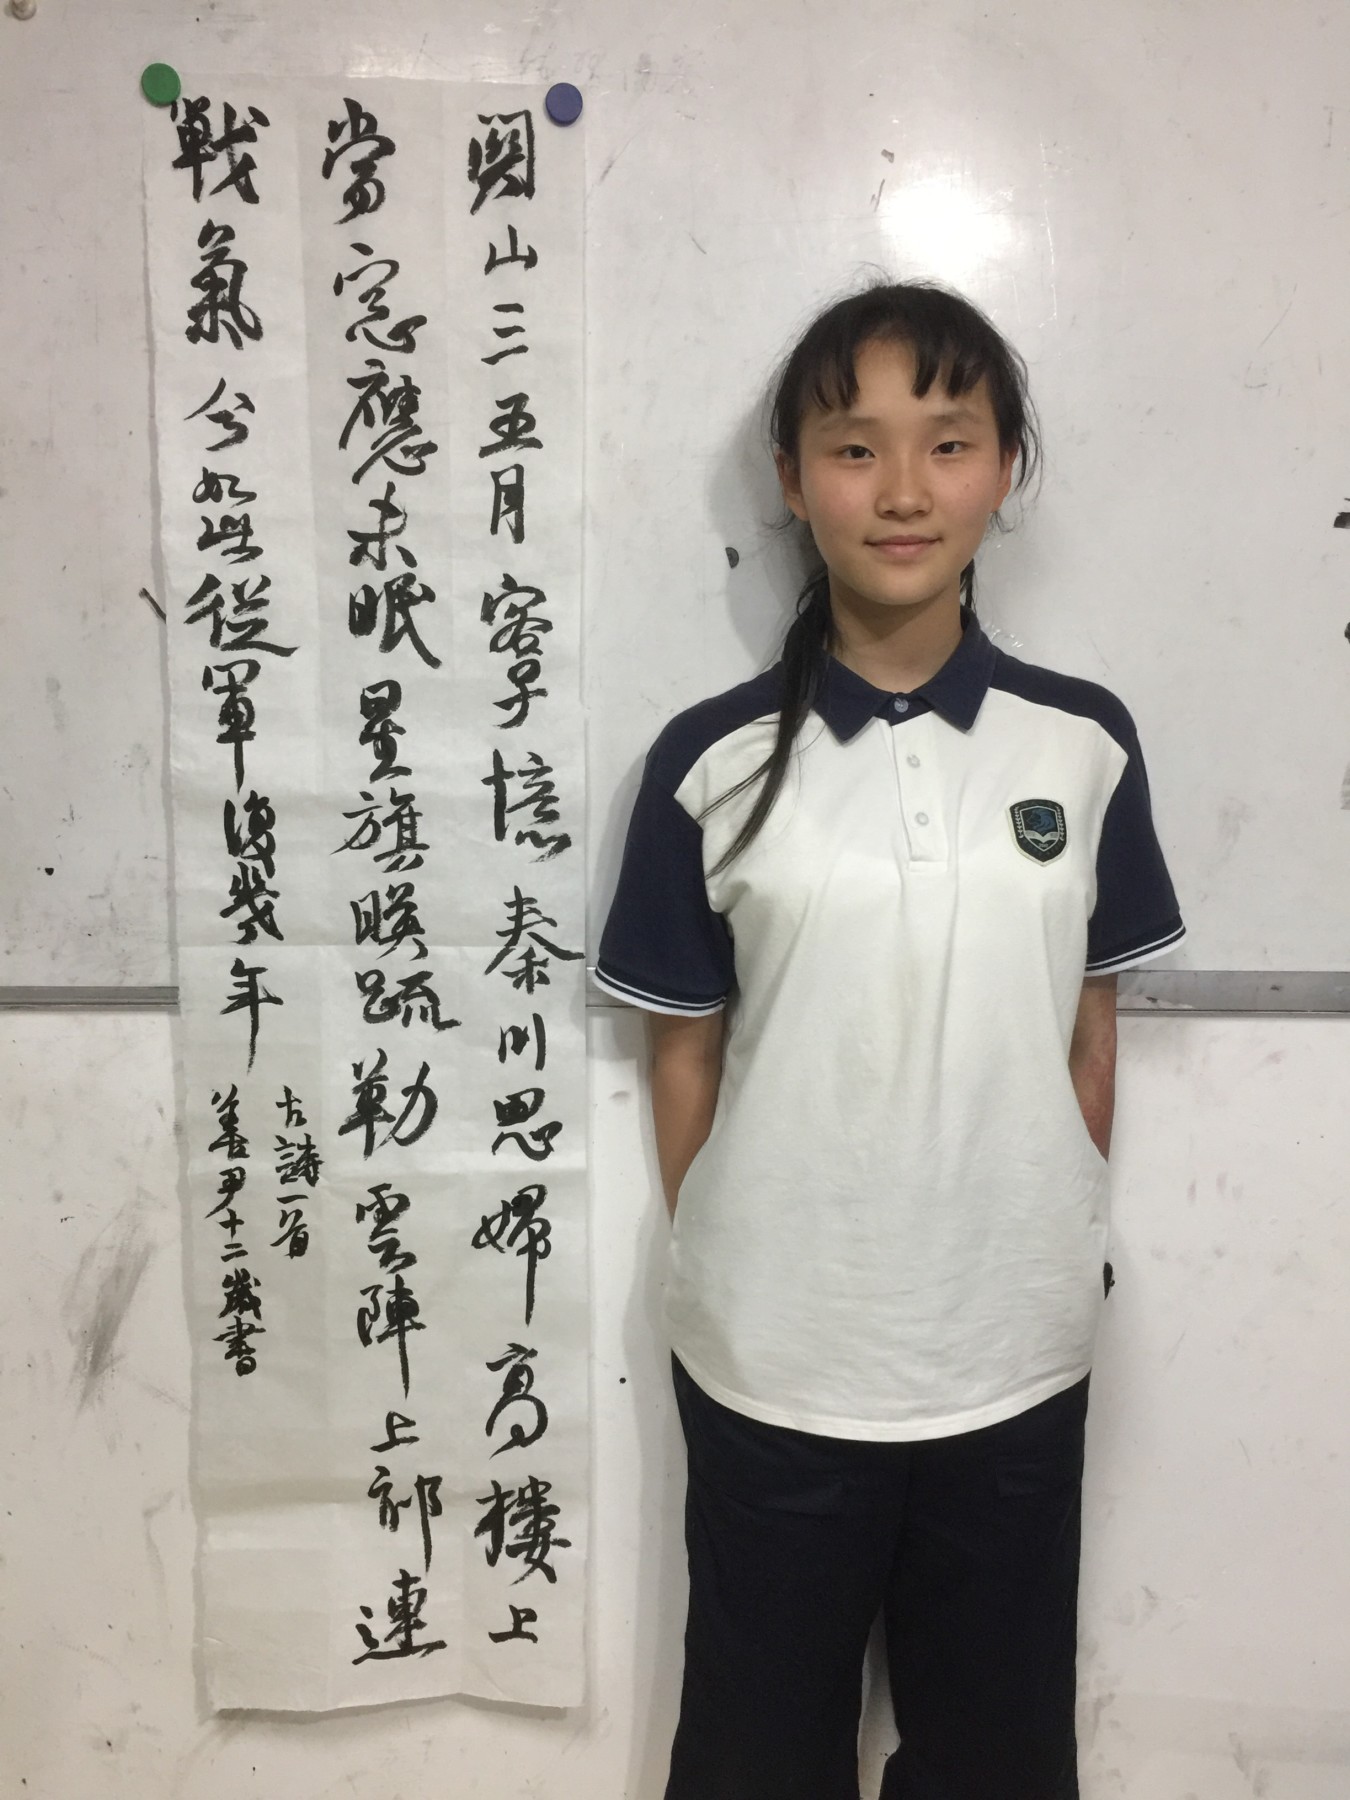 關山三五月客子憶秦川思婦高樓上
當窓應未眠星旗映疏勒雲陣上祁連
戰氣今如此從軍復幾年
古詩一首
善尹十二歲書